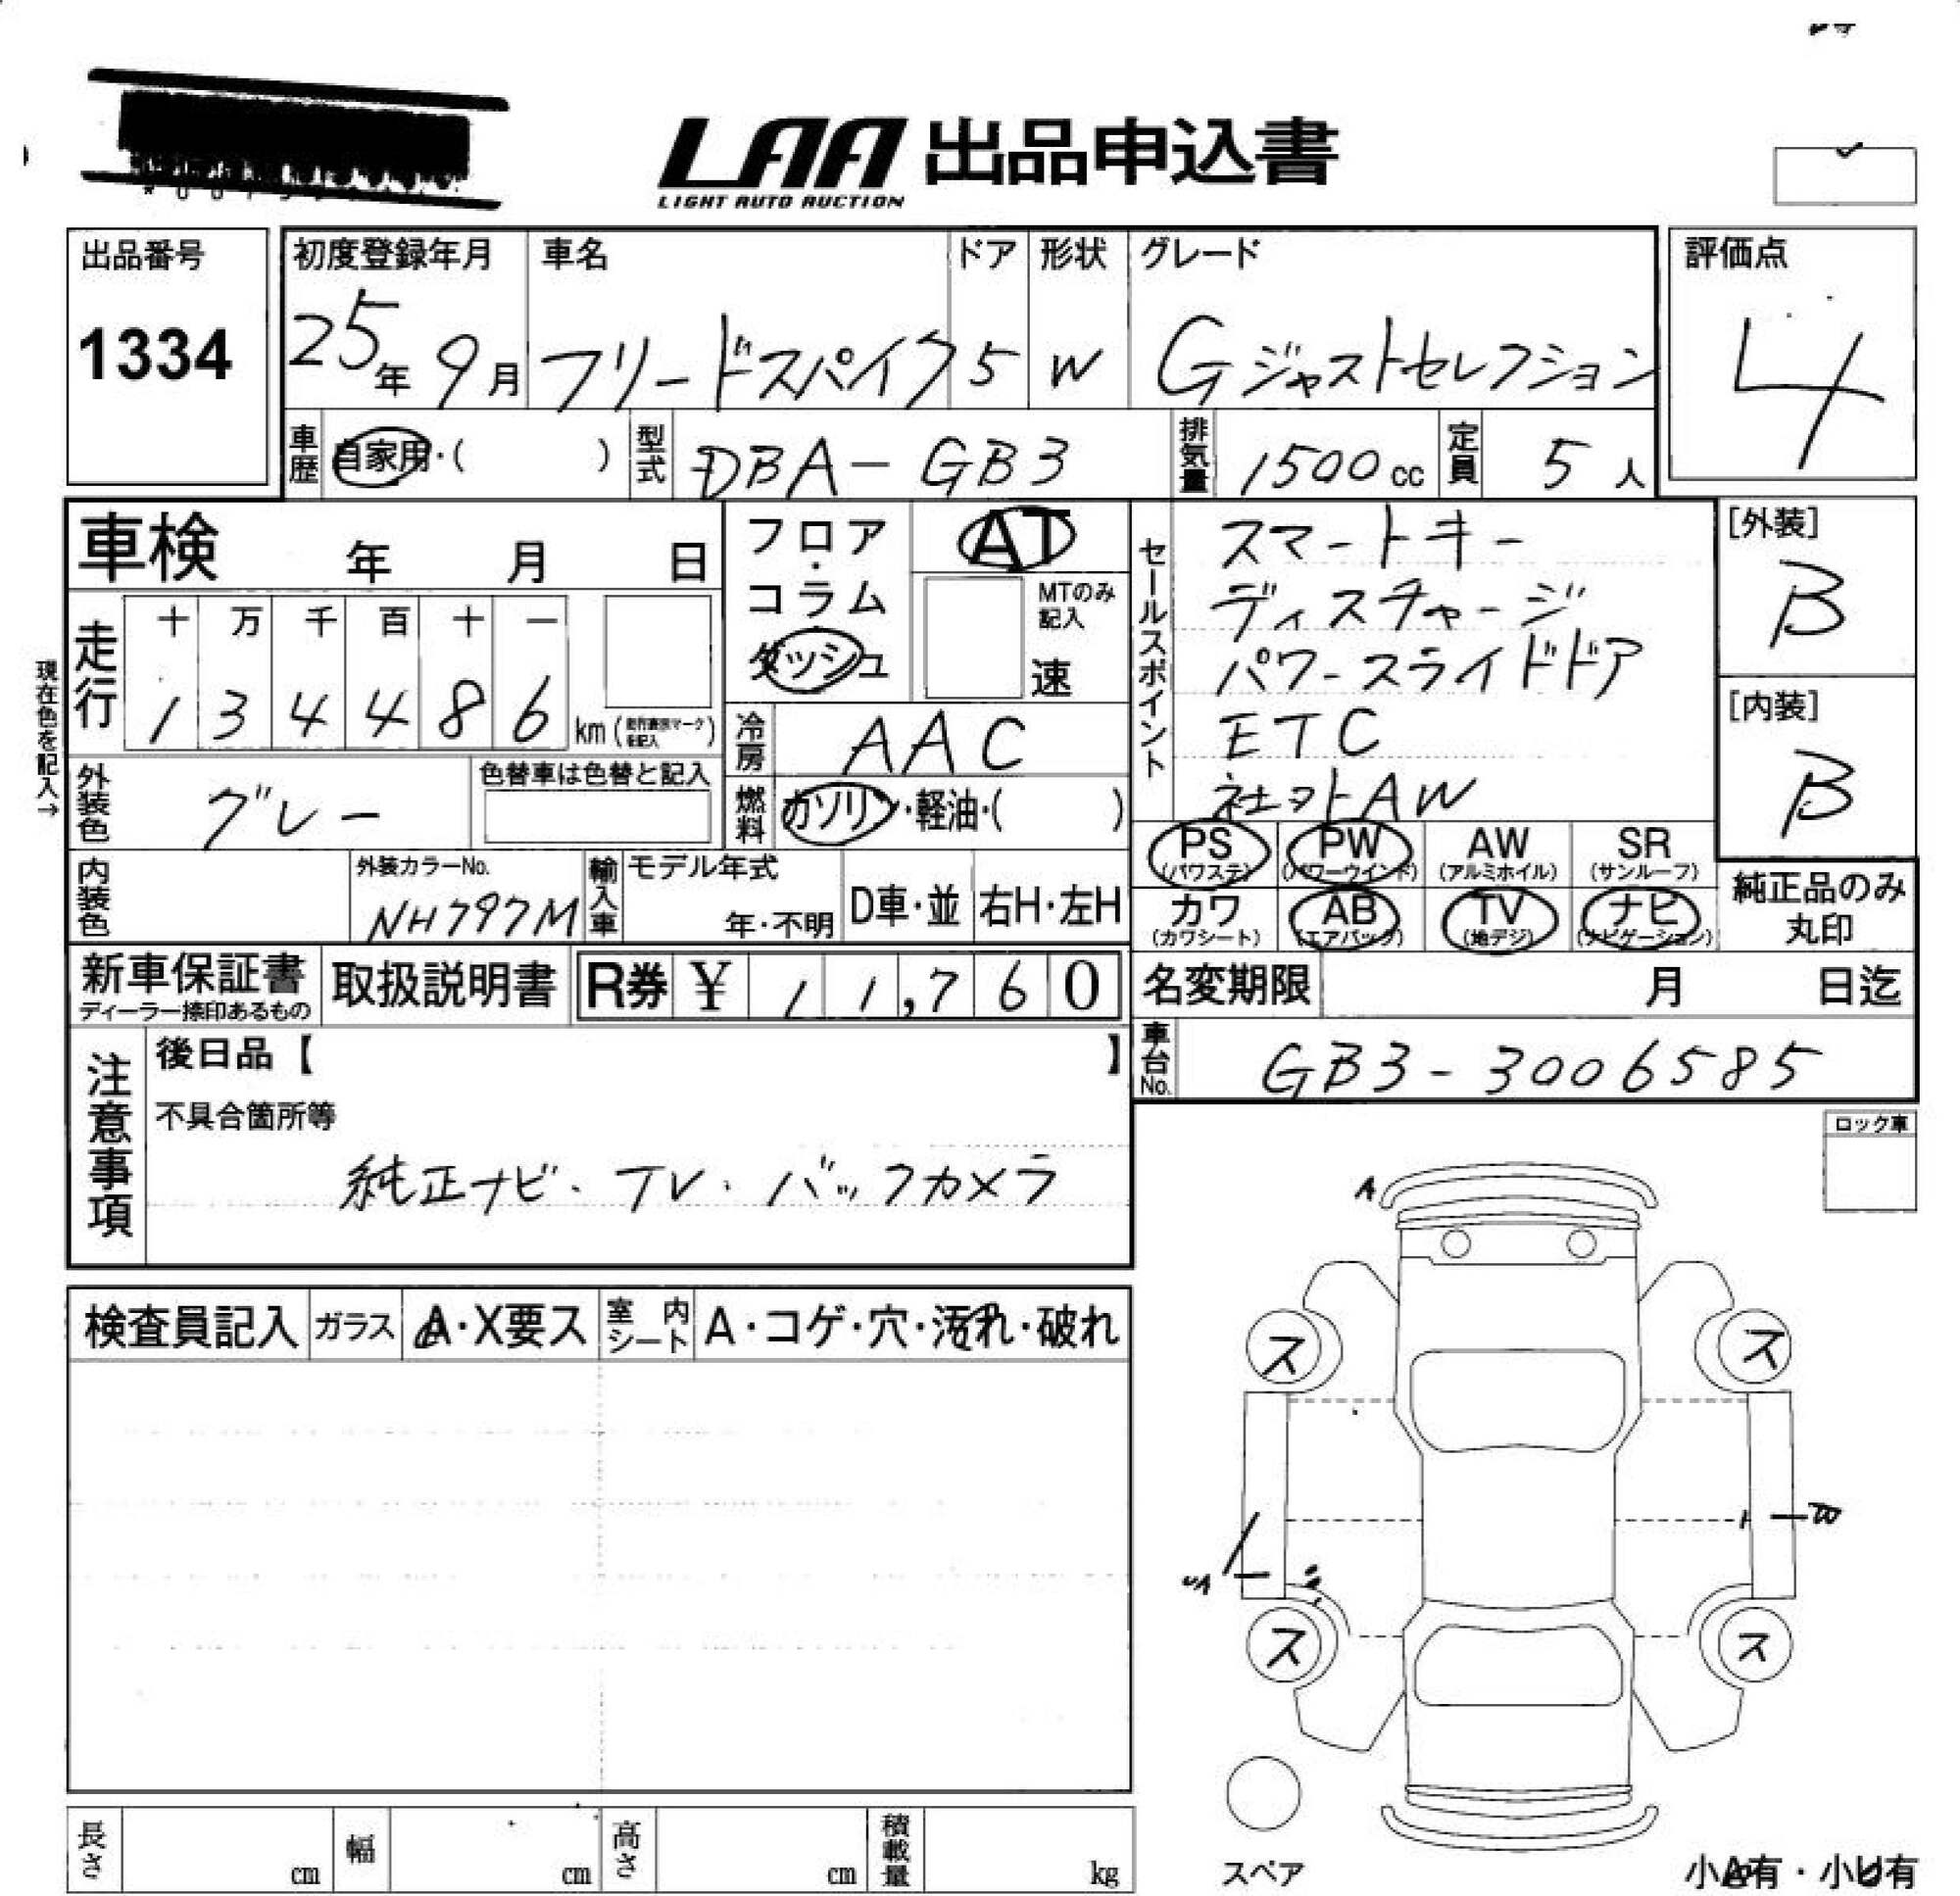 LAA 出品申込書
LIGHT AUTO AUCTION
出品番号
1334
初度登録年月
25年 9月
車名
フリードスパイク
ドア
5
形状
W
グレード
Gジャストセレクション
評価点
4
車歴 自家用・( )
型式 DBA-GB3
排気量 1500cc
定員 5人
車検 年 月 日
走行
十 万 千 百 十 一
1 3 4 4 8 6 km
現在色を記入→
フロア・コラム・ダッシュ
AT
MTのみ記入
速
冷房 AAC
燃料 ガソリン・軽油・( )
セールスポイント
スマートキー
ディスチャージ
パワースライドドア
ETC
社外AW
[外装]
B
[内装]
B
外装色 グレー
色替車は色替と記入
内装色
外装カラーNo.
NH797M
輸入車
モデル年式
年・不明
D車・並
右H・左H
PS (パワステ)
PW (パワーウインド)
AW (アルミホイル)
SR (サンルーフ)
カワ (カワシート)
AB (エアバック)
TV (地デジ)
ナビ (ナビゲーション)
純正品のみ丸印
新車保証書
ディーラー捺印あるもの
取扱説明書
R券 ¥ 11,760
名変期限 月 日迄
車台No. GB3-3006585
注意事項
後日品【 】
不具合箇所等
純正ナビ・TV・バックカメラ
ロック車
検査員記入
ガラス A・X要ス
室内シート A・コゲ・穴・汚れ・破れ
A
ス ス
ス ス
スペア
小A有・小U有
長さ cm
幅 cm
高さ cm
積載量 kg